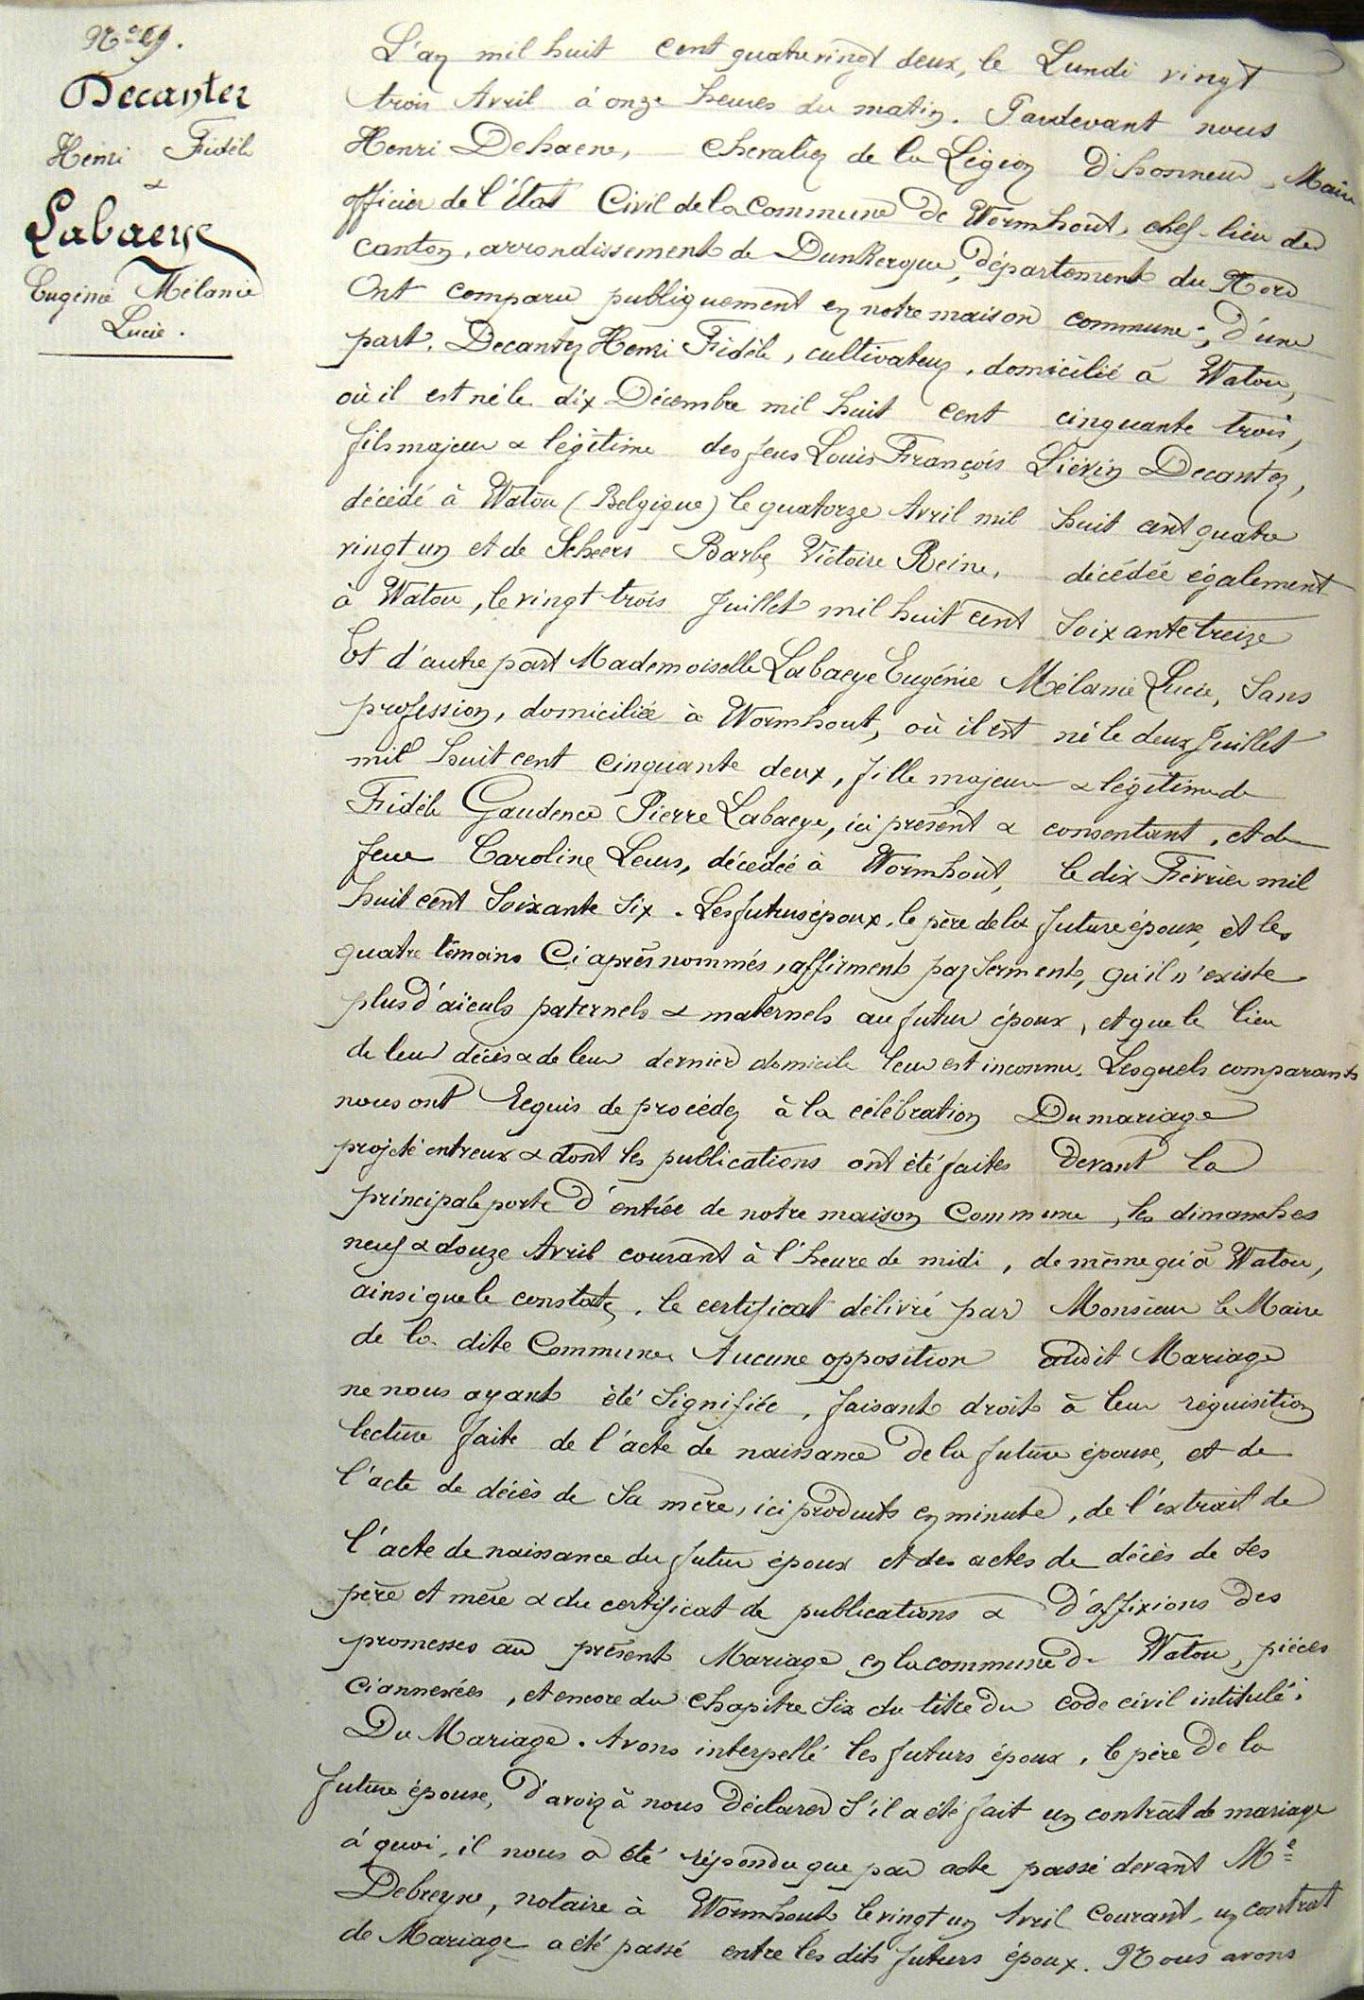 Decanter
Henri Fidèle
&
Labaeye
Eugénie Mélanie
Lucie.
L'an mil huit cent quatrevingt deux, le Lundi vingt
trois Avril à onze heures du matin. Pardevant nous
Henri Dehaene, Chevalier de la Légion d'honneur, Maire
officier de l'État Civil de la Commune de Wormhout, chef-lieu de
canton, arrondissement de Dunkerque, département du Nord
Ont comparu publiquement en notre maison commune; d'une
part. Decanter Henri Fidèle, cultivateur, domicilié à Watou,
où il est né le dix Décembre mil huit cent cinquante trois,
fils majeur & légitime des feus Louis François Liévin Decanter,
décédé à Watou (Belgique) le quatorze Avril mil huit cent quatre
vingt un et de Scheers Barbe Victoire Reine, décédée également
à Watou, le vingt trois Juillet mil huit cent soixante treize
Et d'autre part Mademoiselle Labaeye Eugénie Mélanie Lucie, Sans
profession, domiciliée à Wormhout, où il est né le deux Juillet
mil huit cent cinquante deux, fille majeure & légitime de
Fidèle Gaudence Pierre Labaeye, ici présent & consentant, et de
feue Caroline Leurs, décédée à Wormhout, le dix Février mil
huit cent Soixante Six. Les futurs époux, le père de la future épouse, et les
quatre témoins Ci après nommés, affirment par Serment, qu'il n'existe
plus d'aïeuls paternels & maternels au futur époux, et que le lieu
de leur décès & de leur dernier domicile leur est inconnu. Lesquels comparants
nous ont Requis de procéder à la célébration Du mariage
projeté entreux & dont les publications ont été faites devant la
principale porte d'entrée de notre maison Commune, les dimanches
neuf & douze Avril courant à l'heure de midi, de même qu'à Watou,
ainsi que le constate, le certificat délivré par Monsieur le Maire
de la dite Commune. Aucune opposition audit Mariage
ne nous ayant été Signifiée, faisant droit à leur réquisition
lecture faite de l'acte de naissance de la future épouse, et de
l'acte de décès de Sa mère, ici produits en minute, de l'extrait de
l'acte de naissance du futur époux et des actes de décès de ses
père et mère & du certificat de publications & d'affixions des
promesses au présent Mariage en la commune de Watou, pièces
ci annexées, et encore du chapitre Six du titre Du code civil intitulé:
Du Mariage. Avons interpellé les futurs époux, le père de la
future épouse, d'avoir à nous déclarer S'il a été fait un contrat de mariage
à quoi, il nous a été répondu que par acte passé devant Me
Debreyne, notaire à Wormhout le vingt un Avril Courant, un contrat
de Mariage a été passé entre les dits futurs époux. Nous avons